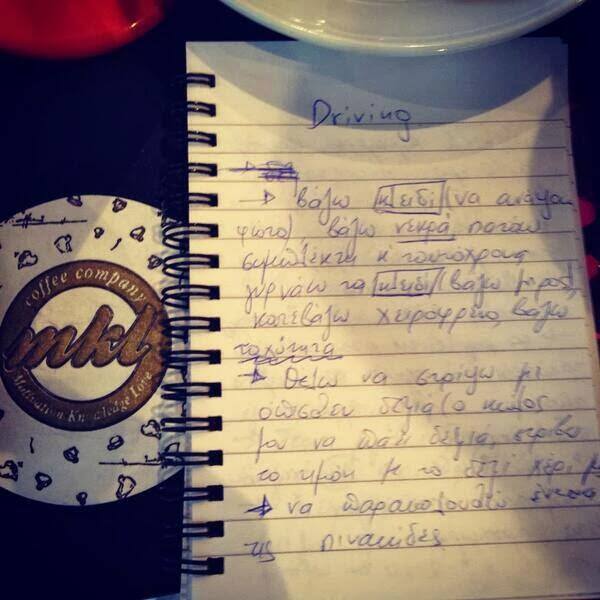 Driving
→ βάζω κλειδί (να ανάψουν
φώτα) βάζω νεκρά, πατάω
συμπλέκτη κ ταυτόχρονα
γυρνάω το κλειδί (βάζω μπρος),
κατεβάζω χειρόφρενο, βάζω
ταχύτητα
→ Θέλω να στρίψω με
όπισθεν δεξιά, ο κώλος
μου να πάει δεξιά, στρίβω
το τιμόνι με το δεξί χέρι
→ να παρακολουθώ
τις πινακίδες
coffee company
mkl
Motivation Knowledge Love